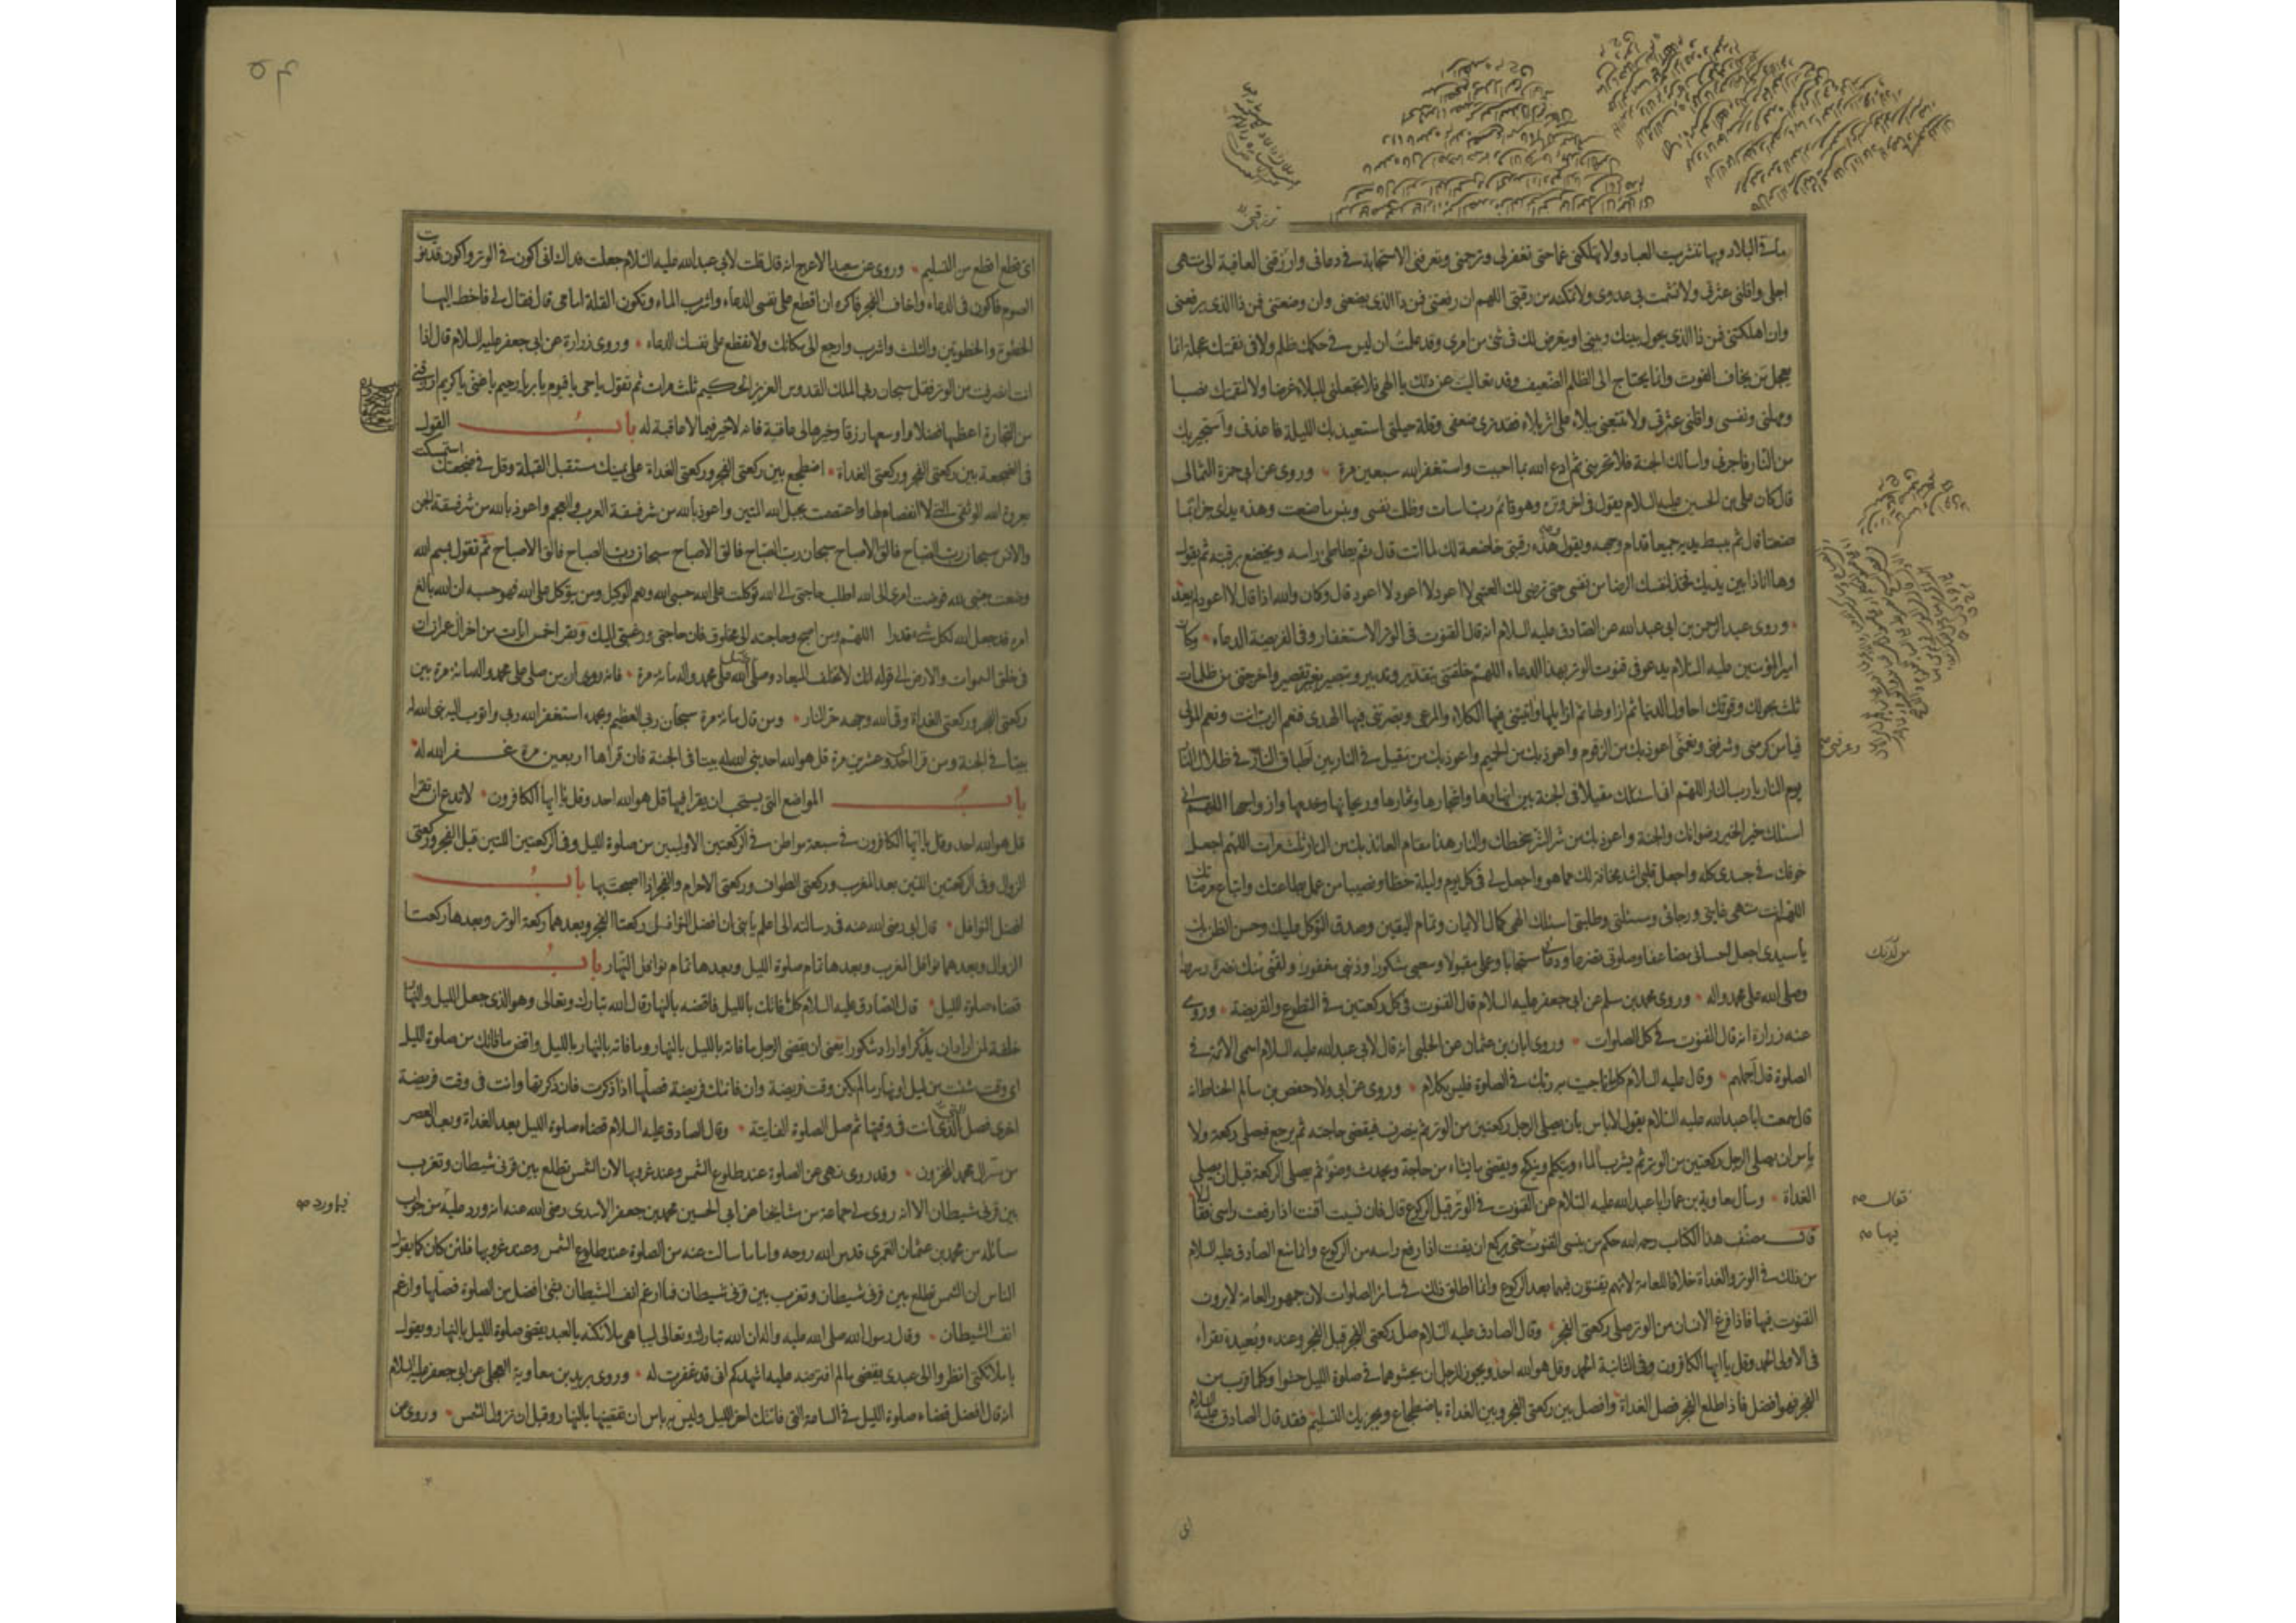 ميتة البلاد وبها تنشر ميت العباد ولا تهلكنى غما حتى تغفر لى وترحمنى وتعرفنى الاستجابة فى دعائى وارزقنى العافية الى منتهى
اجلى واقلنى عثرتى ولا تشمت بى عدوى ولا تمكنه من رقبتى اللهم ان رفعتنى فمن ذا الذى يضعنى وان وضعتنى فمن ذا الذى يرفعنى
وان اهلكتنى فمن ذا الذى يحول بينك وبينى او يتعرض لك فى شئ من امرى وقد علمت ان ليس فى حكمك ظلم ولا فى نقمتك عجلة انما
يعجل من يخاف الفوت وانما يحتاج الى الظلم الضعيف وقد تعاليت عن ذلك يا الهى فلا تجعلنى للبلاء غرضا ولا لنقمتك نصبا
ومهلنى ونفسى واقلنى عثرتى ولا تتبعنى ببلاء على اثر بلاء فقد ترى ضعفى وقلة حيلتى استعيذ بك الليلة فاعذنى واستجير بك
من النار فاجرنى واسالك الجنة فلا تحرمنى ثم ادع الله بما احببت واستغفر الله سبعين مرة وروى عن ابى حمزة الثمالى
قال كان على بن الحسين عليه السلام يقول فى اخر وتره وهو قائم رب اسات وظلمت نفسى وبئس ما صنعت وهذه يداى جزاء بما
صنعتا قال ثم يبسط يديه جميعا قدام وجهه ويقول هذه رقبتى خاضعة لك لما اتت قال ثم يطاطئ راسه ويخضع برقبته ثم يقول
وها انا ذا بين يديك فخذ لنفسك الرضا من نفسى حتى ترضى لك العتبى لا اعود لا اعود لا اعود قال وكان والله اذا قال لا اعود لم يعد
وروى عبد الرحمن بن ابى عبد الله عن الصادق عليه السلام انه قال القنوت فى الوتر الاستغفار وفى الفريضة الدعاء وكان
امير المؤمنين عليه السلام يدعو فى قنوت الوتر بهذا الدعاء اللهم خلقتنى بتقدير وتدبير وتبصير بغير تقصير واخرجتنى من ظلمات
ثلث بحولك وقوتك احاول الدنيا ثم ازاولها ثم ازايلها واتيتنى فيها الكلاء والمرعى وبصرتنى فيها الهدى فنعم الرب انت ونعم المولى
فيا من كرمنى وشرفنى ونعمنى اعوذ بك من الزقوم واعوذ بك من الحميم واعوذ بك من مقيل فى النار بين اطباق النار فى ظلال النار
يوم النار يا رب النار اللهم انى اسئلك مقيلا فى الجنة بين انهارها واشجارها وثمارها وريحانها وخدمها وازواجها اللهم انى
اسئلك خير الخير رضوانك والجنة واعوذ بك من شر الشر سخطك والنار هذا مقام العائذ بك من النار ثلث مرات اللهم اجعل
خوفك فى جسدى كله واجعل قلبى اشد مخافة لك مما هو واجعل لى فى كل يوم وليلة حظا ونصيبا من عمل بطاعتك واتباع مرضاتك
اللهم انت منتهى غايتى ورجائى ومسئلتى وطلبتى اسئلك الهى كمال الايمان وتمام اليقين وصدق التوكل عليك وحسن الظن بك
يا سيدى اجعل احسانى مضاعفا وصلوتى تضرعا ودعائى مستجابا وعملى مقبولا وسعيى مشكورا وذنبى مغفورا ولقنى منك نضرة وسرورا
وصلى الله على محمد واله وروى محمد بن مسلم عن ابى جعفر عليه السلام قال القنوت فى كل ركعتين فى التطوع والفريضة وروى
عنه زرارة انه قال القنوت فى كل الصلوات وروى ابان بن عثمان عن الحلبى انه قال لابى عبد الله عليه السلام اسمى الائمة فى
الصلوة قال اجملهم وقال عليه السلام كلما ناجيت به ربك فى الصلوة فليس بكلام وروى عن ابى ولاد حفص بن سالم الحناط انه
قال سمعت ابا عبد الله عليه السلام يقول لا باس بان يصلى الرجل ركعتين من الوتر ثم ينصرف فيقضى حاجته ثم يرجع فيصلى ركعة ولا
باس ان يصلى الرجل ركعتين من الوتر ثم يشرب الماء ويتكلم وينكح ويقضى ما يشاء من حاجة ويحدث وضوءا ثم يصلى الركعة قبل ان يصلى
الغداة وسأل معاوية بن عمار ابا عبد الله عليه السلام عن القنوت فى الوتر قبل الركوع قال فان نسيت اقنت اذا رفعت راسى فقال لا
قال مصنف هذا الكتاب رحمه الله حكم من ينسى القنوت حتى يركع ان يقنت اذا رفع راسه من الركوع وانما منع الصادق عليه السلام
من ذلك فى الوتر والغداة خلافا للعامة لانهم يقنتون فيهما بعد الركوع وانما اطلق ذلك فى سائر الصلوات لان جمهور العامة لا يرون
القنوت فيها فاذا فرغ الانسان من الوتر صلى ركعتى الفجر وقال الصادق عليه السلام صل ركعتى الفجر قبل الفجر وعنده وبعيده تقراء
فى الاولى الحمد وقل يا ايها الكافرون وفى الثانية الحمد وقل هو الله احد ويجوز للرجل ان يحشوهما فى صلوة الليل حشوا وكلما قرب من
الفجر فهو افضل فاذا طلع الفجر فصل الغداة وافصل بين ركعتى الفجر وبين الغداة باضطجاع ويجزيك التسليم فقد قال الصادق عليه السلام
وعرفنى
من لدنك
فقال
فيها
اى قطع اقطع من التسليم وروى عن سعيد الاعرج انه قال قلت لابى عبد الله عليه السلام جعلت فداك انى اكون فى الوتر واكون قد نويت
الصوم فاكون فى الدعاء واخاف الفجر فاكره ان اقطع على نفسى الدعاء واشرب الماء وتكون القلة امامى قال فقال لى فاخط اليها
الخطوة والخطوتين والثلث واشرب وارجع الى مكانك ولا تقطع على نفسك الدعاء وروى زرارة عن ابى جعفر عليه السلام قال اذا
انت انصرفت من الوتر فقل سبحان ربى الملك القدوس العزيز الحكيم ثلث مرات ثم تقول يا حى يا قيوم يا بر يا رحيم يا غنى يا كريم ارزقنى
من التجارة اعظمها فضلا واوسعها رزقا وخيرها لى عاقبة فانه لا خير فيما لا عاقبة له باب القول
فى الضجعة بين ركعتى الفجر وركعتى الغداة اضطجع بين ركعتى الفجر وركعتى الغداة على يمينك مستقبل القبلة وقل فى ضجعتك استمسكت
بعروة الله الوثقى التى لا انفصام لها واعتصمت بحبل الله المتين واعوذ بالله من شر فسقة العرب والعجم واعوذ بالله من شر فسقة الجن
والانس سبحان رب الصباح فالق الاصباح سبحان رب الصباح فالق الاصباح سبحان رب الصباح فالق الاصباح ثم تقول بسم الله
وضعت جنبى لله فوضت امرى الى الله اطلب حاجتى من الله توكلت على الله حسبى الله ونعم الوكيل ومن يتوكل على الله فهو حسبه ان الله بالغ
امره قد جعل الله لكل شئ قدرا اللهم ومن اصبح وحاجته الى مخلوق فان حاجتى ورغبتى اليك وتقرا خمس ايات من اخر ال عمران ان
فى خلق السموات والارض الى قوله انك لا تخلف الميعاد وصلى الله على محمد واله مائة مرة فانه روى ان من صلى على محمد واله مائة مرة بين
ركعتى الفجر وركعتى الغداة وقى الله وجهه حر النار ومن قال مائة مرة سبحان ربى العظيم وبحمده استغفر الله ربى واتوب اليه بنى الله له
بيتا فى الجنة ومن قرا احدى وعشرين مرة قل هو الله احد بنى الله له بيتا فى الجنة فان قراها اربعين مرة غفر الله له
باب المواضع التى يستحب ان يقرا فيها قل هو الله احد وقل يا ايها الكافرون لا تدع ان تقرا
قل هو الله احد وقل يا ايها الكافرون فى سبعة مواطن فى الركعتين الاوليين من صلوة الليل وفى الركعتين اللتين قبل الفجر وركعتى
الزوال وفى الركعتين اللتين بعد المغرب وركعتى الطواف وركعتى الاحرام والفجر اذا اصبحت بها باب
افضل النوافل قال ابى رضى الله عنه فى رسالته الى اعلم يا بنى ان افضل النوافل ركعتا الفجر وبعدهما ركعة الوتر وبعدها ركعتا
الزوال وبعدهما نوافل المغرب وبعدها تمام صلوة الليل وبعدها تمام نوافل النهار باب
قضاء صلوة الليل قال الصادق عليه السلام كلما فاتك بالليل فاقضه بالنهار قال الله تبارك وتعالى وهو الذى جعل الليل والنهار
خلفة لمن اراد ان يذكر او اراد شكورا يعنى ان يقضى الرجل ما فاته بالليل بالنهار وما فاته بالنهار بالليل واقض ما فاتك من صلوة الليل
اى وقت شئت من ليل او نهار ما لم يكن وقت فريضة وان فاتتك فريضة فصلها اذا ذكرت فان ذكرتها وانت فى وقت فريضة
اخرى فصل التى انت فى وقتها ثم صل الصلوة الفايتة وقال الصادق عليه السلام قضاء صلوة الليل بعد الغداة وبعد العصر
من سر ال محمد المخزون وقد روى نهى عن الصلوة عند طلوع الشمس وعند غروبها لان الشمس تطلع بين قرنى شيطان وتغرب
بين قرنى شيطان الا انه روى لى جماعة من مشايخنا عن ابى الحسين محمد بن جعفر الاسدى رضى الله عنه انه ورد عليه من جواب
مسائله من محمد بن عثمان العمرى قدس الله روحه واما ما سالت عنه من الصلوة عند طلوع الشمس وعند غروبها فلئن كان كما يقول
الناس ان الشمس تطلع بين قرنى شيطان وتغرب بين قرنى شيطان فما ارغم انف الشيطان بشئ افضل من الصلوة فصلها وارغم
انف الشيطان وقال رسول الله صلى الله عليه واله ان الله تبارك وتعالى ليباهى ملائكته بالعبد يقضى صلوة الليل بالنهار ويقول
يا ملائكتى انظروا الى عبدى يقضى ما لم افترضه عليه اشهدكم انى قد غفرت له وروى بريد بن معاوية العجلى عن ابى جعفر عليه السلام
انه قال افضل قضاء صلوة الليل فى الساعة التى فاتتك اخر الليل وليس به باس ان تقضيها بالنهار وقبل ان تزول الشمس وروى عن
فيما ورد